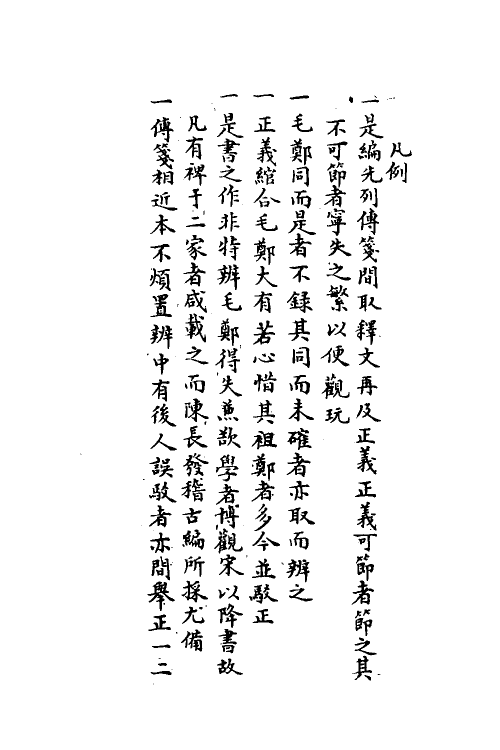 凡例
一是編先列傳箋間取釋文再及正義正義可節者節之其
不可節者寧失之繁以便觀玩
一毛鄭同而是者不錄其同而未確者亦取而辨之
一正義綰合毛鄭大有苦心惜其袒鄭者多今並駁正
一是書之作非特辨毛鄭得失兼欲學者博觀宋以降書故
凡有裨于二家者咸載之而陳長發稽古編所採尤備
一傳箋相近本不煩置辨中有後人誤駁者亦間舉正一二